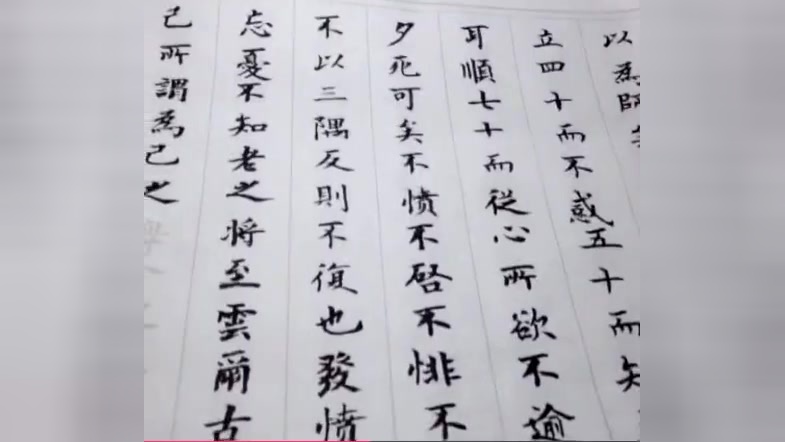 以為師矣
立四十而不惑五十而知
耳順七十而從心所欲不逾
夕死可矣不愤不啓不悱不
不以三隅反則不復也發愤
忘憂不知老之將至雲爾古
己所謂為己之